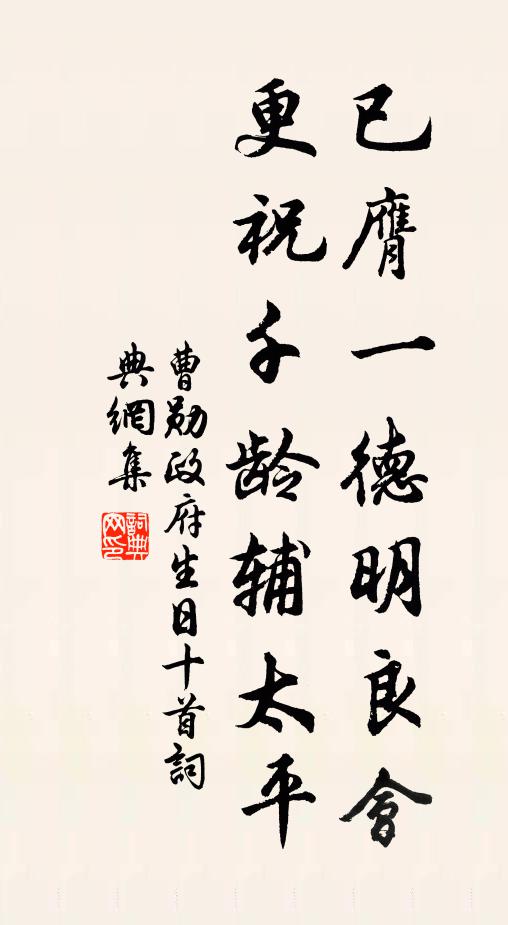 已膺一德明良會
更祝千龄辅太平
曹勛政府生日十首詞
典網集
詞典網印